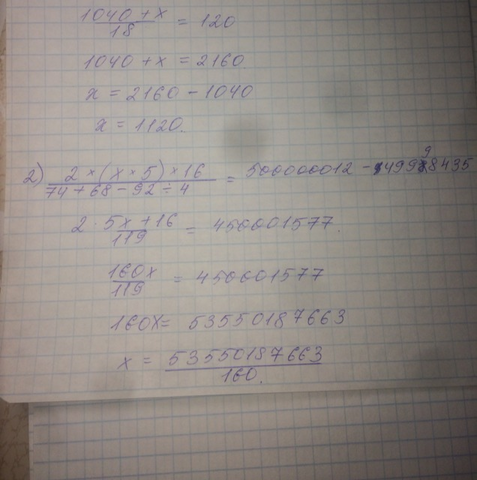 (1040 + x) / 18 = 120
1040 + x = 2160
x = 2160 - 1040
x = 1120.
2) (2 × (x × 5) × 16) / (74 + 68 - 92 ÷ 4) = 500000012 -
(2 · 5x + 16) / 119 = 450001577.
160x / 119 = 450001577
160x = 53550187663
x = 53550187663 / 160.